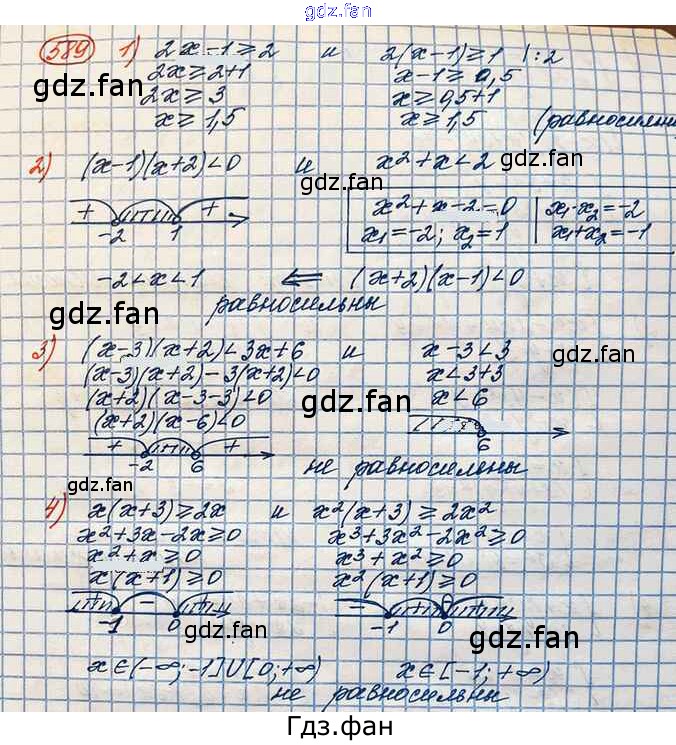 gdz.fan
589 1) 2x-1≥2 и 2(x-1)≥1 |:2
2x≥2+1 x-1≥0,5
2x≥3 x≥0,5+1
x≥1,5 x≥1,5 (равносильны
gdz.fan gdz.fan
2) (x-1)(x+2)<0 и x²+x<2
gdz.fan
+ + x²+x-2=0 x₁·x₂=-2
-2 1 x₁=-2; x₂=1 x₁+x₂=-1
gdz.fan gdz.fan
-2<x<1 ⇐ (x+2)(x-1)<0
равносильны
gdz.fan
3) (x-3)(x+2)<3x+6 и x-3<3
(x-3)(x+2)-3(x+2)<0 x<3+3
(x+2)(x-3-3)<0 x<6
(x+2)(x-6)<0
gdz.fan gdz.fan
+ +
-2 6 6
не равносильны
gdz.fan gdz.fan
4) x(x+3)≥2x и x²(x+3)≥2x²
x²+3x-2x≥0 x³+3x²-2x²≥0
x²+x≥0 x³+x²≥0
x(x+1)≥0 x²(x+1)≥0
gdz.fan
+ - + - + +
-1 0 -1 0
gdz.fan gdz.fan
x∈(-∞;-1]∪[0;+∞) x∈[-1;+∞)
не равносильны
gdz.fan gdz.fan
Гдз.фан